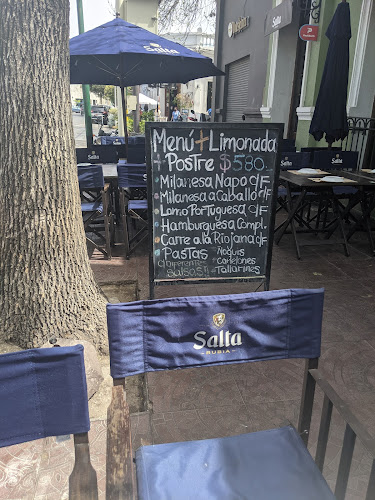 Salta
Menú + Limonada
+ Postre $580.
- Milanesa Napo c/F
- Milanesa a Caballo c/F
- Lomo Portuguesa c/F
- Hamburguesa Compl.
- Carre a la Riojana c/F
- Pastas - Ñoquis
Diferentes - Canelones
Salsas!! - Tallarines
Salta
RUBIA
Salta